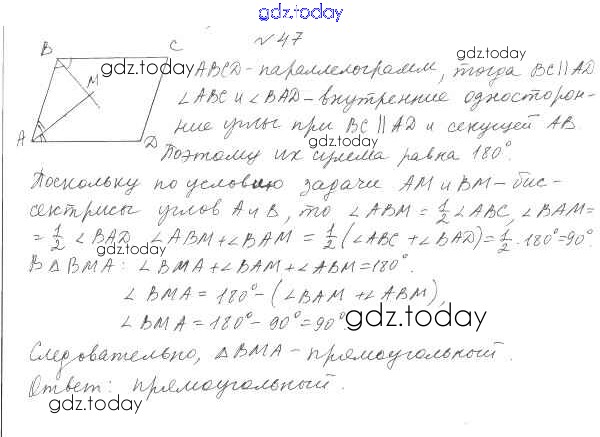 gdz.today
№ 47
B C
gdz.today gdz.today
M
ABCD - параллелограмм, тогда BC || AD
∠ABC и ∠BAD - внутренние односторон-
A D
ние углы при BC || AD и секущей AB.
gdz.today
Поэтому их сумма равна 180°.
Поскольку по условию задачи AM и BM - бис-
сектрисы углов A и B, то ∠ABM = 1/2 ∠ABC, ∠BAM =
= 1/2 ∠BAD. ∠ABM + ∠BAM = 1/2 (∠ABC + ∠BAD) = 1/2 · 180° = 90°.
gdz.today
В △BMA: ∠BMA + ∠BAM + ∠ABM = 180°.
∠BMA = 180° - (∠BAM + ∠ABM),
∠BMA = 180° - 90° = 90°
gdz.today
Следовательно, △BMA - прямоугольный.
Ответ: прямоугольный.
gdz.today